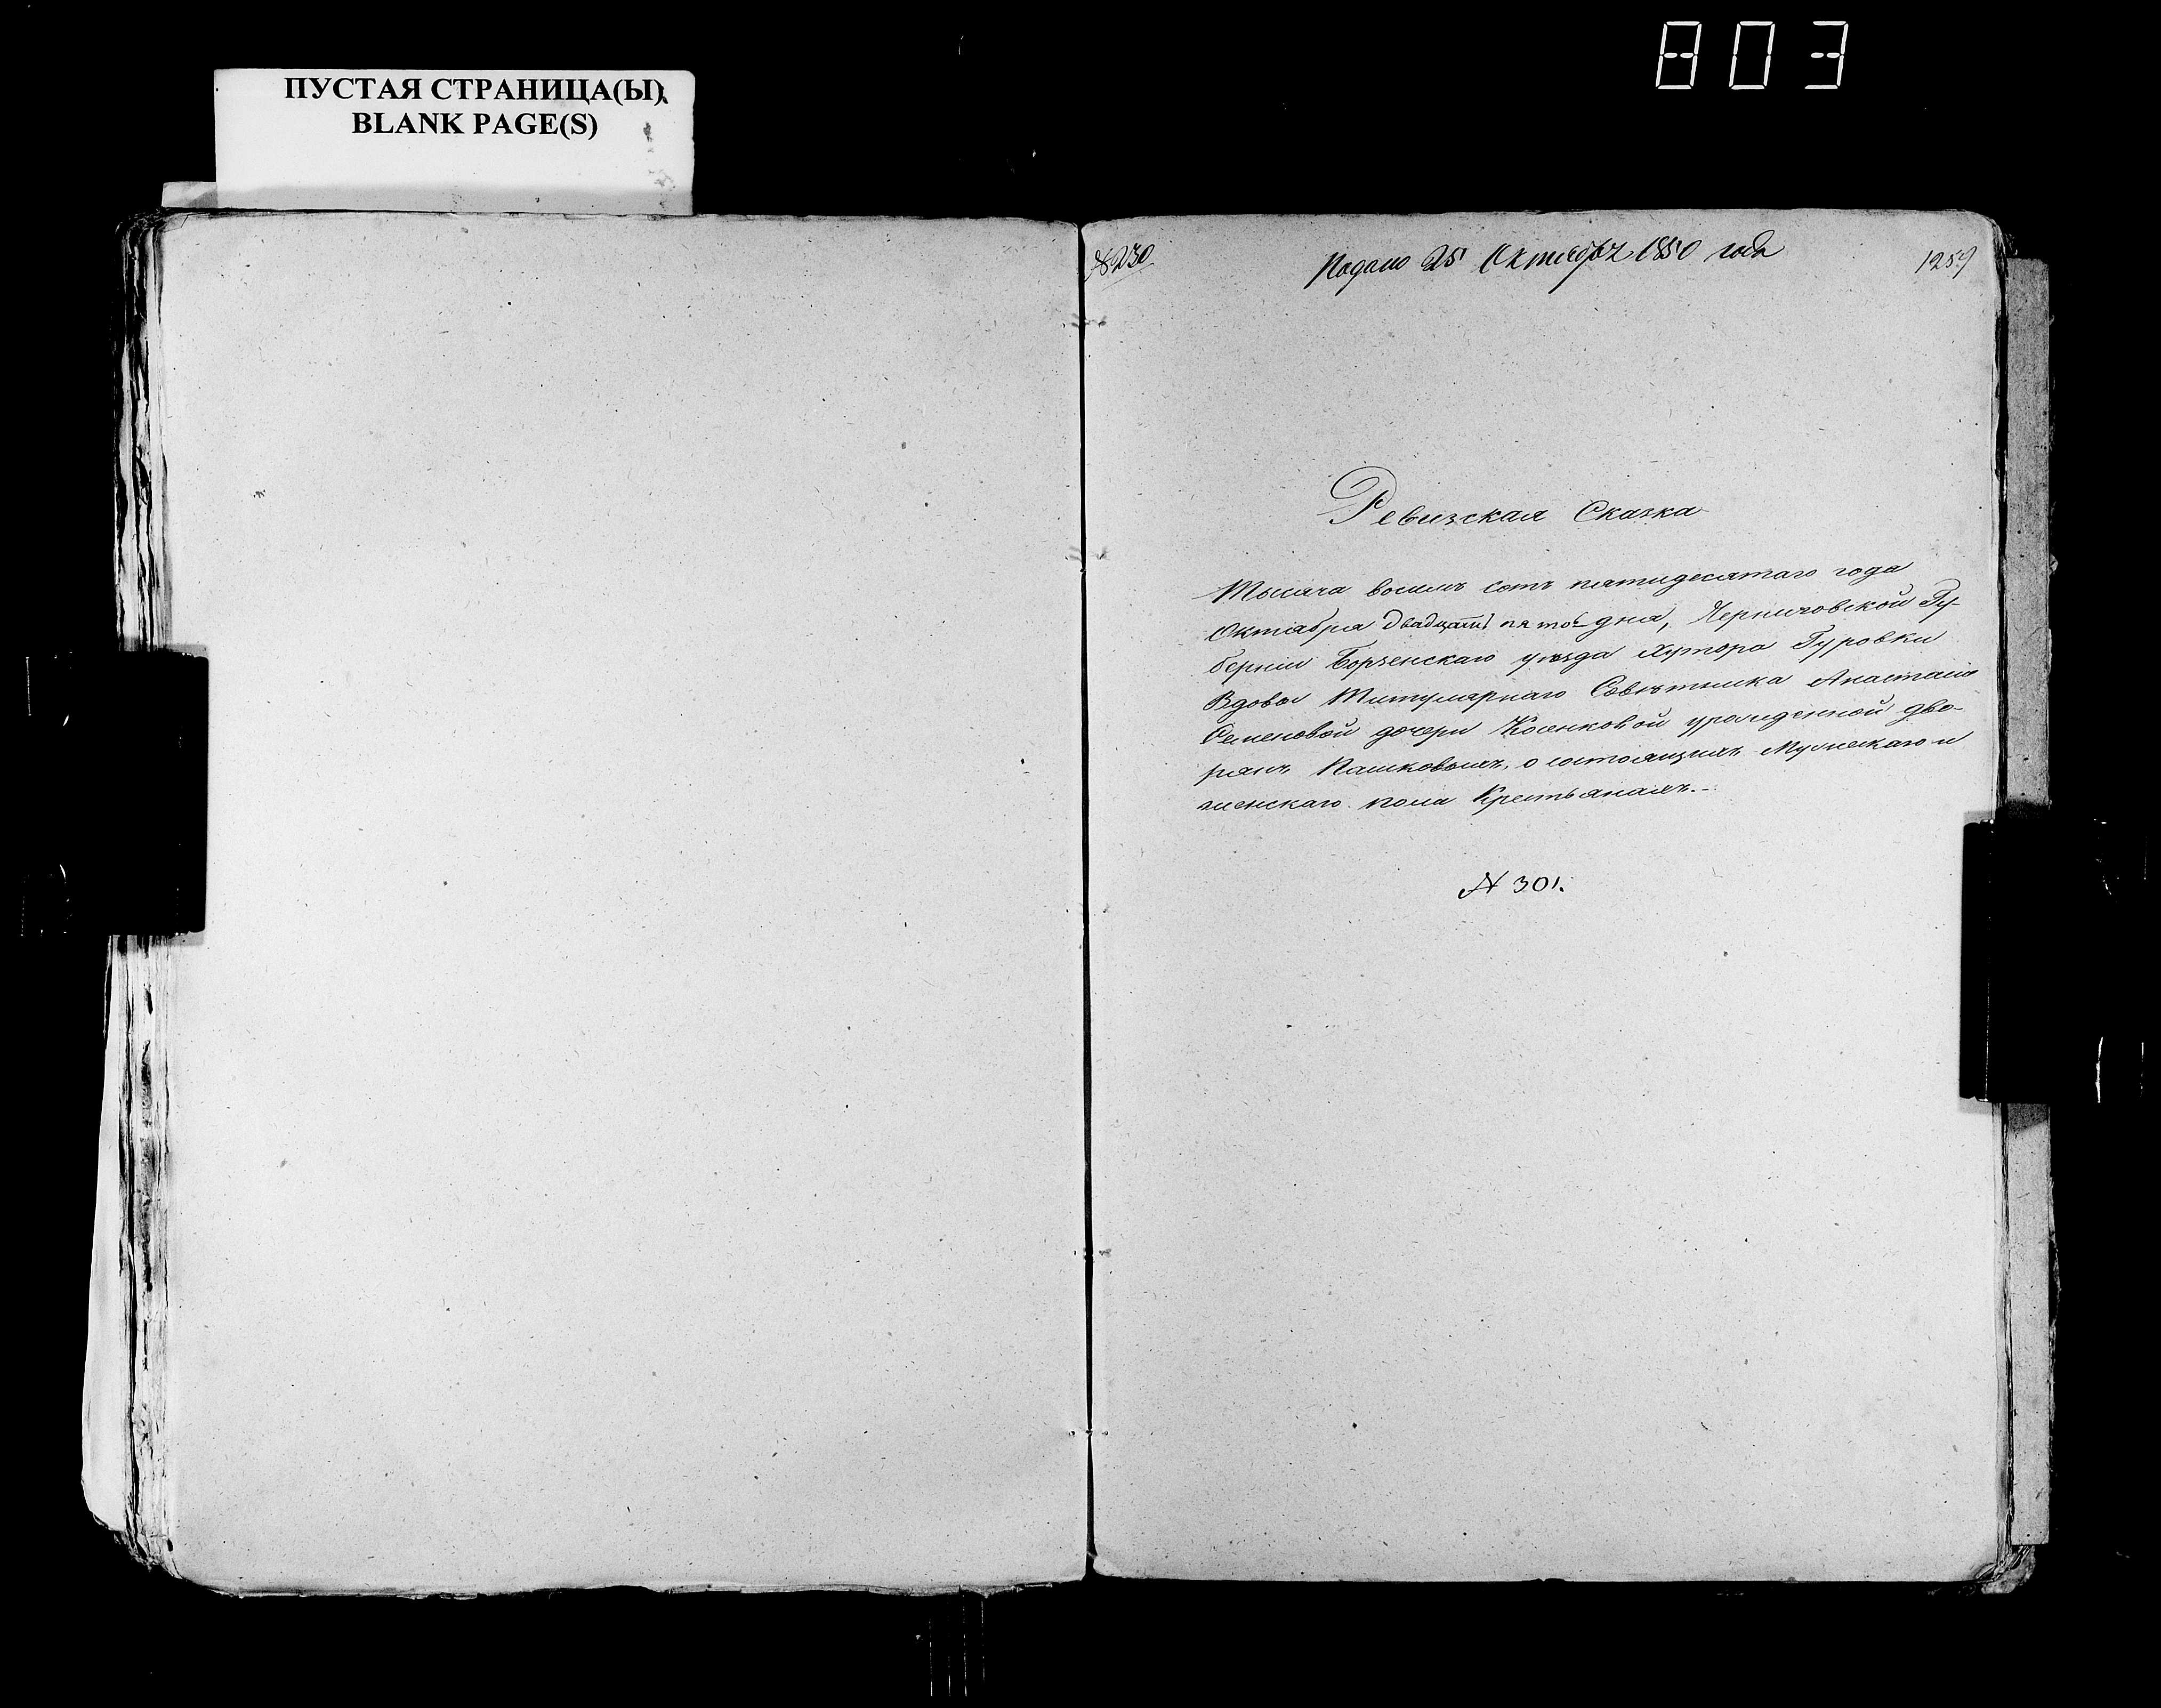 803
ПУСТАЯ СТРАНИЦА(Ы)
BLANK PAGE(S)
№ 230
Подано 25 Октября 1850 года
1259
Ревизская Сказка
Тысяча восемь сотъ пятидесятаго года
Октября двадцать пятого дня, Черниговской Гу-
берніи Борзенскаго уѣзда Хутора Гуровки
Вдовы Титулярнаго Совѣтника Анастасіи
Семеновой дочери Косенковой урожденной дво-
рянъ Пашковыхъ, о состоящихъ Мужескаго и
женскаго пола Крестьянахъ.-
№ 301.